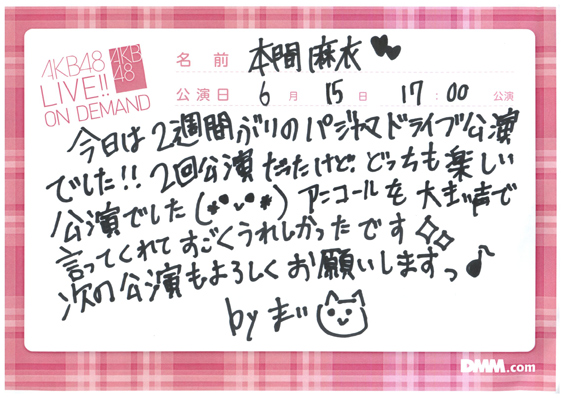 AKB48
LIVE!!
ON DEMAND
AKB
48
名前 本間麻衣
公演日 6月 15日 17:00 公演
今日は2週間ぶりのパジャマドライブ公演
でした!! 2回公演だったけど、どっちも楽しい
公演でした(*°ᴗ°*) アンコールを大きい声で
言ってくれてすごくうれしかったです
次の公演もよろしくお願いしますっ♪
by まい
DMM.com